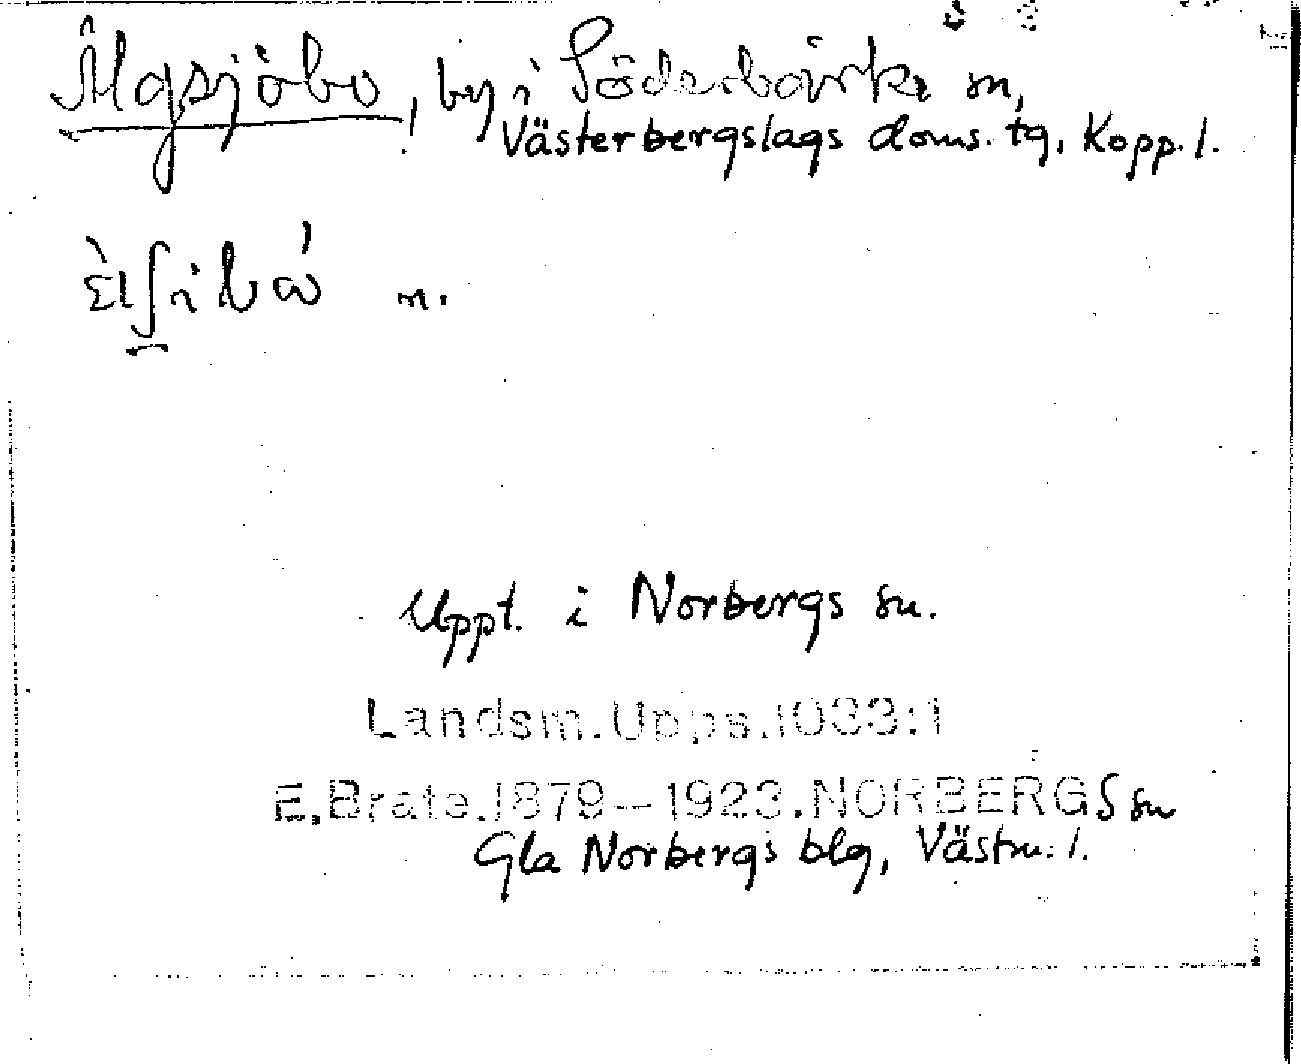 Älgsjöbo, by i Söderbärke sn,
Västerbergslags doms. tg, Kopp. l.
n.
Uppt. i Norbergs sn.
Landsm. Upps. 1033:1
E. Brate. 1879–1923. NORBERGS sn
Gla Norbergs blg, Västm. l.